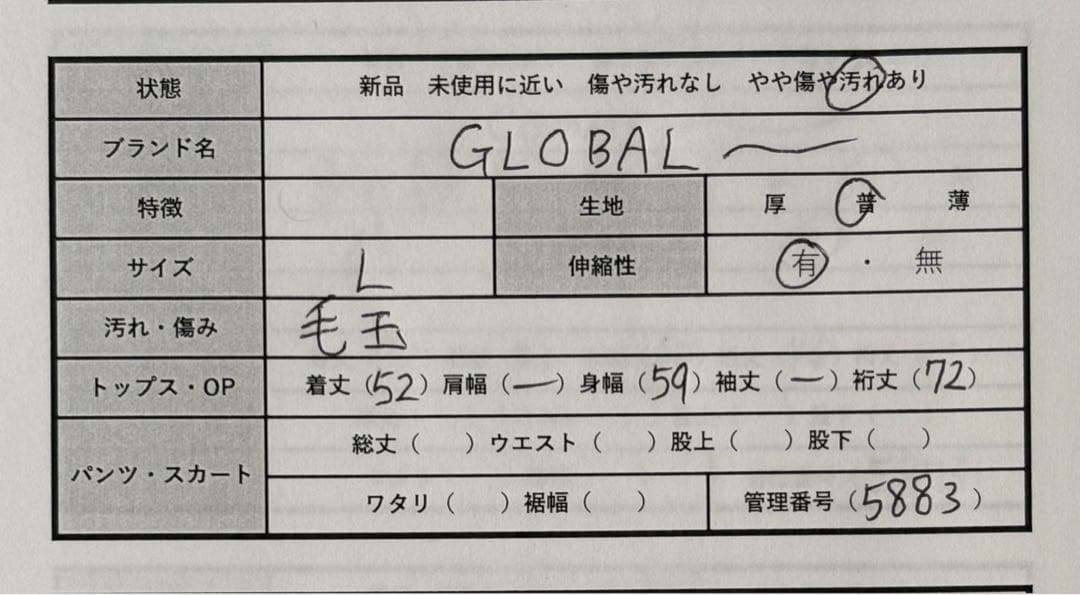 状態 新品 未使用に近い 傷や汚れなし やや傷や汚れあり
ブランド名 GLOBAL
特徴 生地 厚 普 薄
サイズ L 伸縮性 有 ・ 無
汚れ・傷み 毛玉
トップス・OP 着丈(52) 肩幅(ー) 身幅(59) 袖丈(ー) 裄丈(72)
パンツ・スカート 総丈( ) ウエスト( ) 股上( ) 股下( )
ワタリ( ) 裾幅( ) 管理番号(5883)